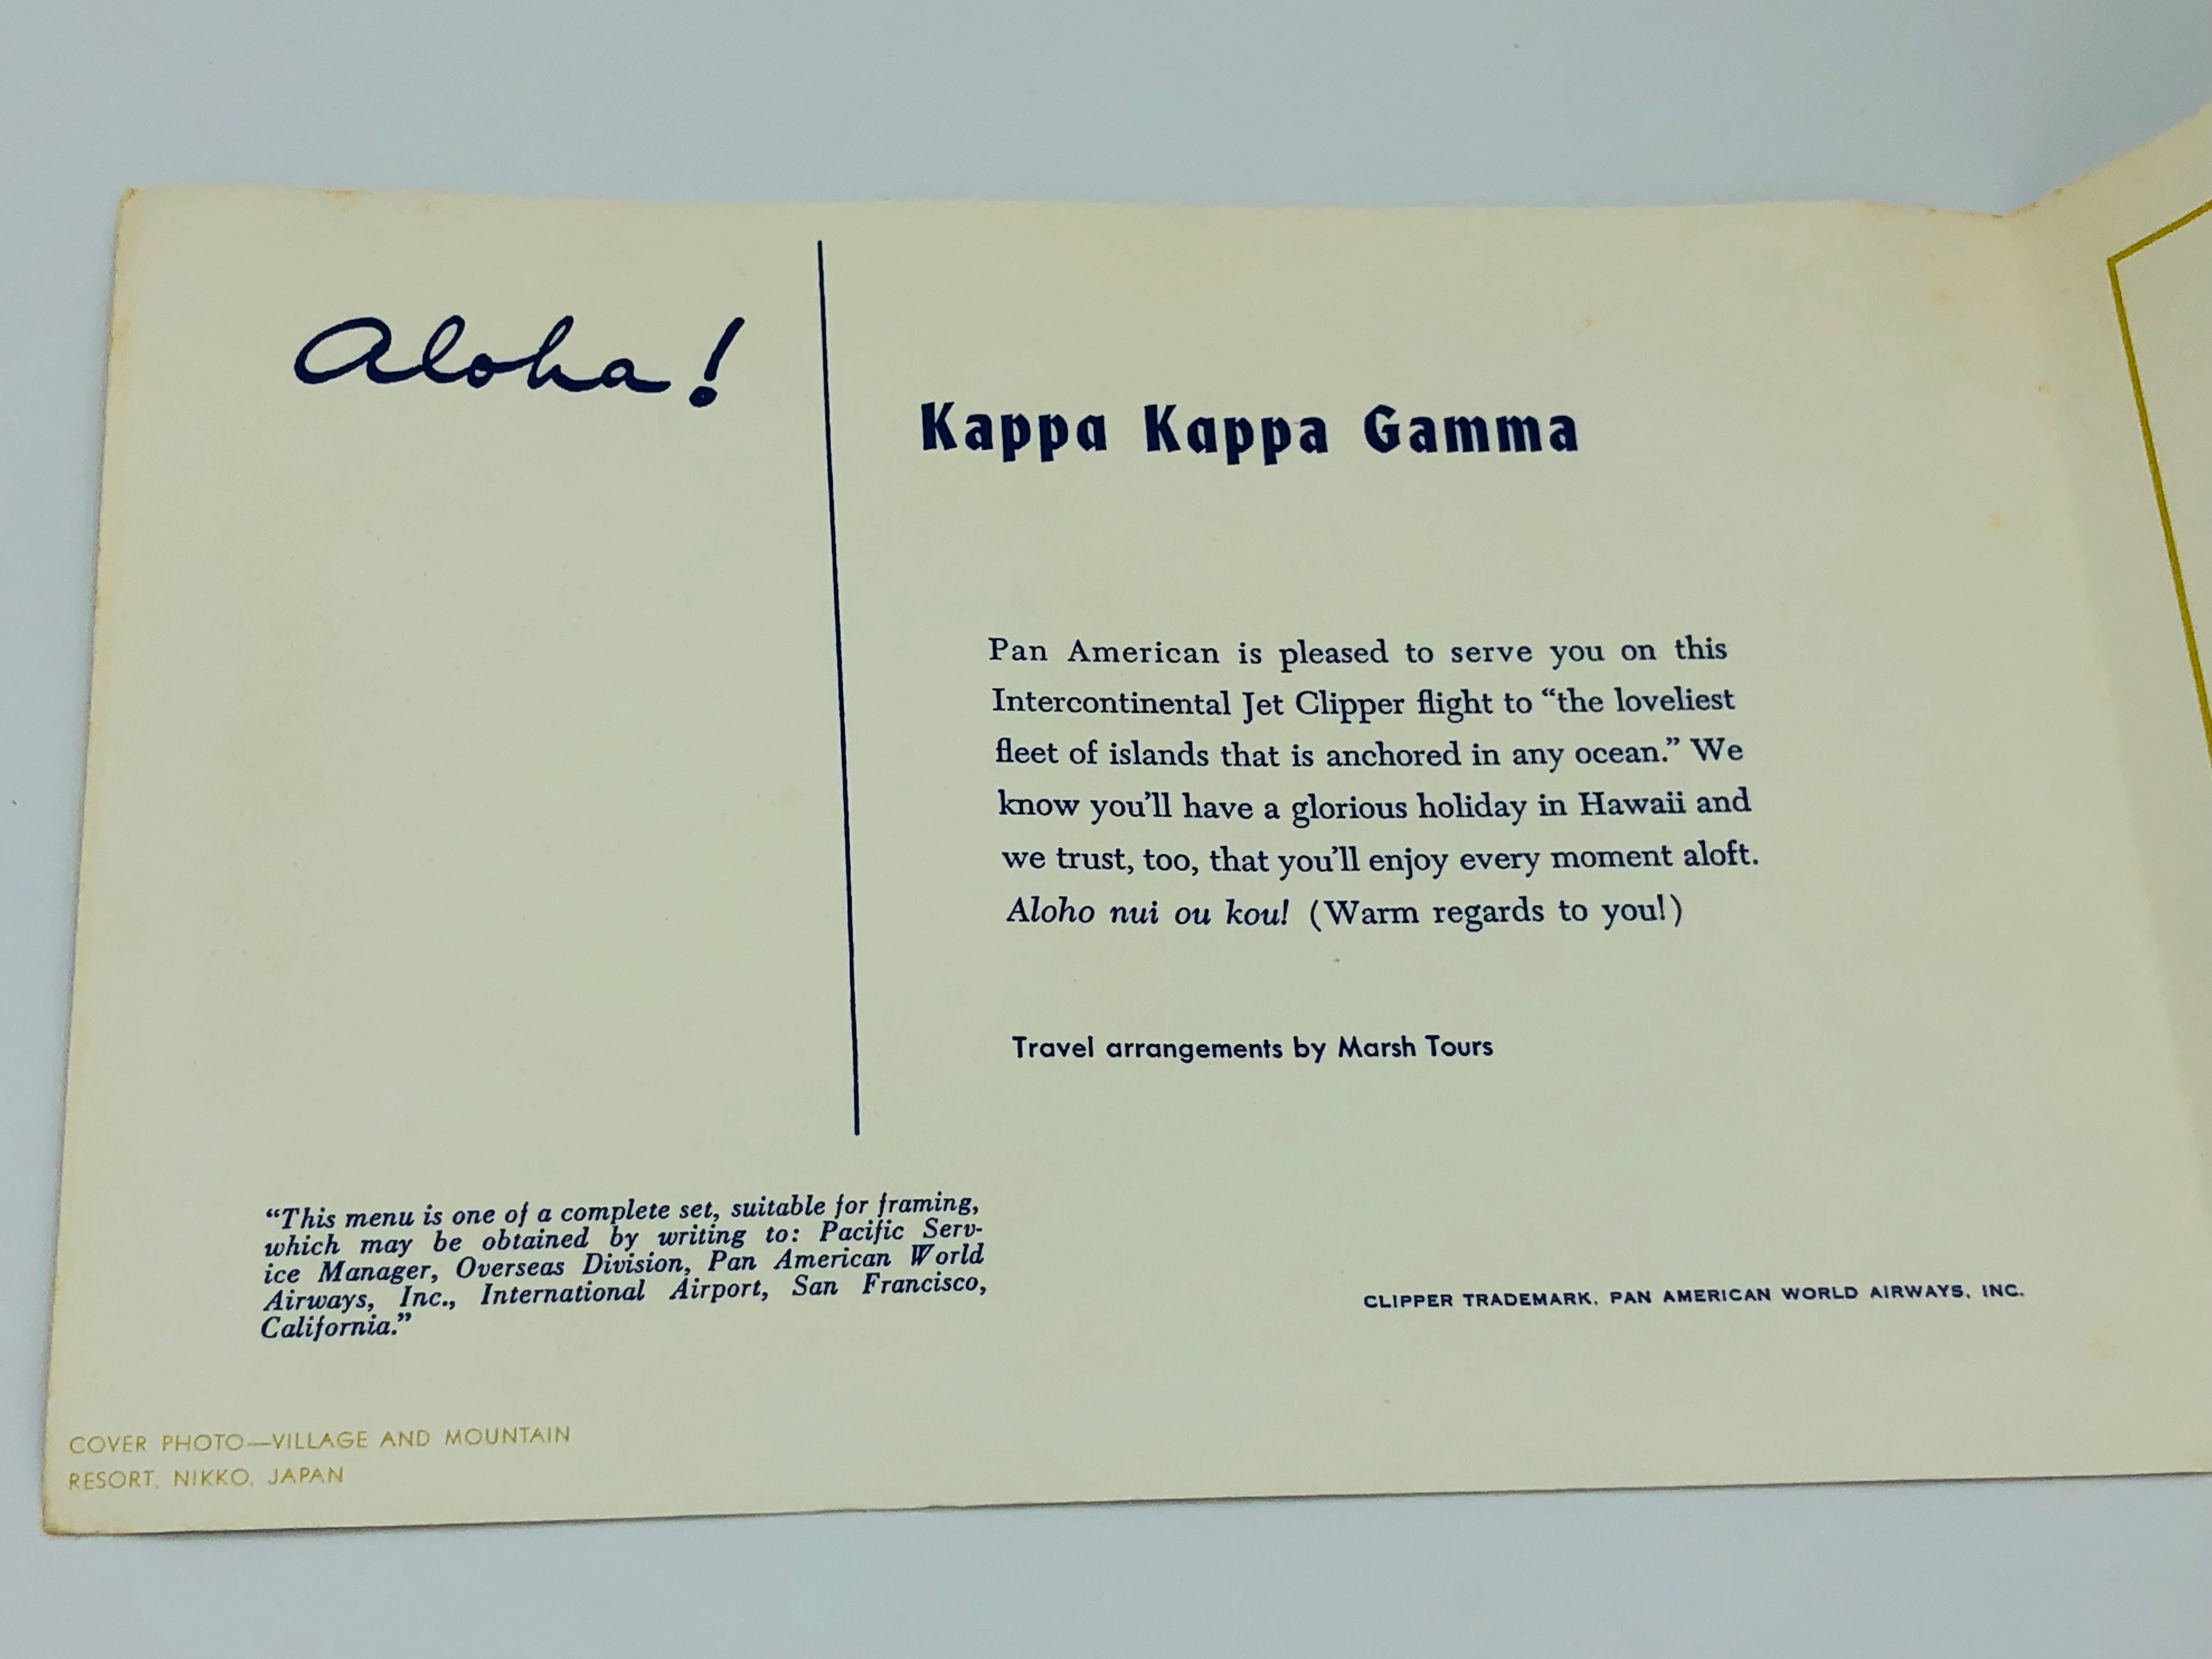 Aloha!
Kappa Kappa Gamma
Pan American is pleased to serve you on this
Intercontinental Jet Clipper flight to “the loveliest
fleet of islands that is anchored in any ocean.” We
know you’ll have a glorious holiday in Hawaii and
we trust, too, that you’ll enjoy every moment aloft.
Aloho nui ou kou! (Warm regards to you!)
Travel arrangements by Marsh Tours
“This menu is one of a complete set, suitable for framing,
which may be obtained by writing to: Pacific Serv-
ice Manager, Overseas Division, Pan American World
Airways, Inc., International Airport, San Francisco,
California.”
CLIPPER TRADEMARK, PAN AMERICAN WORLD AIRWAYS, INC.
COVER PHOTO—VILLAGE AND MOUNTAIN
RESORT, NIKKO, JAPAN